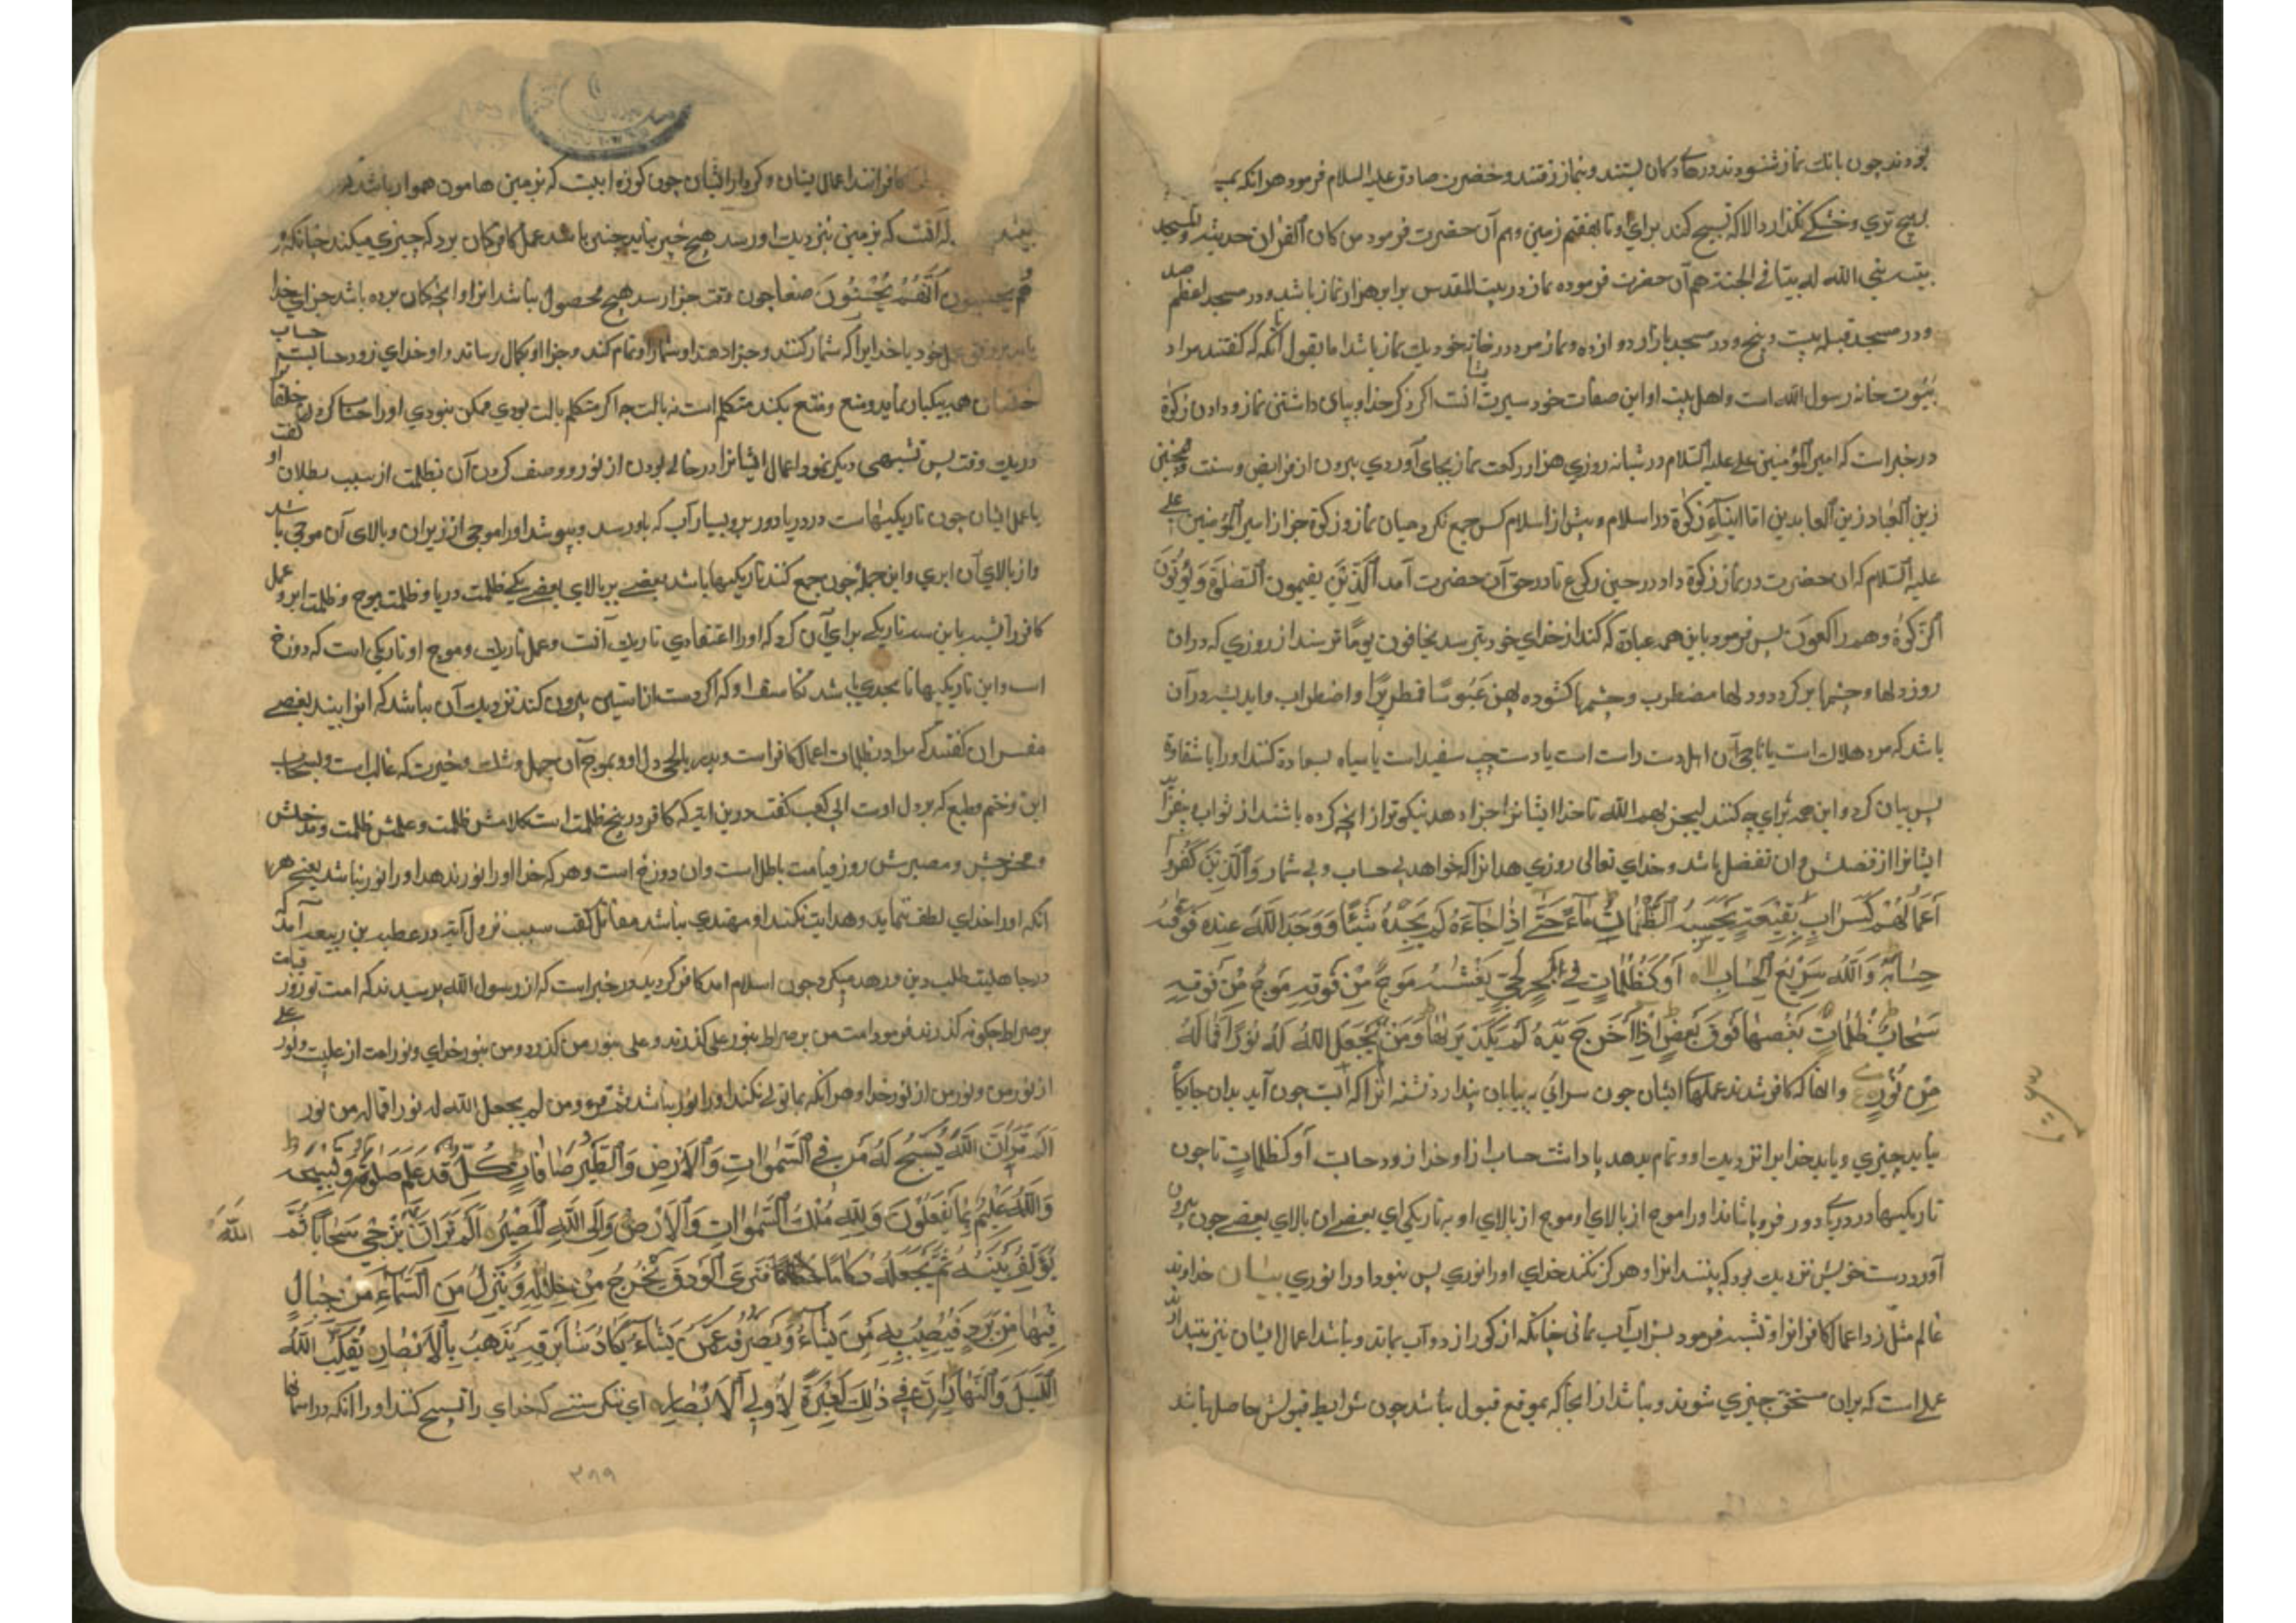 بودند چون بانك نماز شنودند درهاى دكان ببستند و بنماز رفتند و حضرت صادق عليه السلام فرمود هر انكه
هيچ تري و خشكے نگذارد الا كه تسبيح كند براى او تا بهفتم زمين و هم آن حضرت فرمود من كان القران حديثه و المسجد
بيته بني الله له بيتا في الجنة هم آن حضرت فرموده نماز در بيت المقدس برابر هزار نماز باشد و در مسجد اعظم صد
و در مسجد قبيله بيست و پنج و در مسجد بازار دوازده و نماز مرد در خانه خود يك نماز باشد اما بقول آنكه كه گفتند مراد
بيوت خانه رسول الله است و اهل بيت او اين صفات خود سيرت ايشان است از ذكر خدا و بپاى داشتن نماز و دادن زكوة
در خبر است كه امير المؤمنين على عليه السلام در شبانه روزي هزار ركعت نماز بجاى آوردي بيرون از فرايض و سنت و همچنين
زين العباد زين العابدين اما ايتاء زكوة در اسلام و پيش از اسلام كس جمع نكرد ميان نماز و زكوة جز از امير المؤمنين على
عليه السلام كه ان حضرت در نماز زكوة داد در حين ركوع تا در حق آن حضرت آمد الَّذِينَ يقيمون الصلوة وَيُؤتُونَ
الزكوة وهم راكعون پس فرمود با اين همه عبادة كه كند از خداي خود بترسد يخافون يومًا ترسند از روزي كه دران
روز دلها و چشمها بر گردد و دلها مضطرب و چشمها گشوده لهن عَبُوسًا قمطريرًا و اضطراب و انديشه در آن
باشد كه مرد هلاك است يا ناجي آن اهل دست راست است يا دست چپ سفيد است يا سياه بسعادة كنند اورا يا شقاوة
پس بيان كرد و اين همه براي چه كنند ليجزيهم الله تا خدا ايشانرا جزا دهد نيكوتر از انچه كرده باشند از ثواب
ايشانرا از فضلش و ان تفضل باشد و خداي تعالى روزي دهد انرا كه خواهد بى حساب و بى شمار وَالَّذِينَ كَفَرُوا
أَعْمَالُهُمْ كَسَرَابٍ بِقِيعَةٍ يَحْسَبُهُ الظَّمْآنُ مَآءً حَتَّى إِذَا جَآءَهُ لَمْ يَجِدْهُ شَيْئًا وَوَجَدَ اللَّهَ عِنْدَهُ فَوَفَّيهُ
حِسَابَهُ وَاللَّهُ سَرِيعُ الْحِسَابِ أَوْ كَظُلُمَاتٍ فِي بَحْرٍ لُجِّيٍّ يَغْشَيهُ مَوْجٌ مِنْ فَوْقِهِ مَوْجٌ مِنْ فَوْقِهِ
سَحَابٌ ظُلُمَاتٌ بَعْضُهَا فَوْقَ بَعْضٍ إِذَا أَخْرَجَ يَدَهُ لَمْ يَكَدْ يَرَيهَا وَمَنْ لَمْ يَجْعَلِ اللَّهُ لَهُ نُورًا فَمَا لَهُ
مِنْ نُورٍ و انها كه كافر شدند عملهاى ايشان چون سرابى به بيابان پندارد تشنه انرا كه آبست چون آيد بدان جايگا
نيابد چيزي و يابد خدايرا نزديك او و تمام بدهد پاداشت حساب او و خدا زود حسابست أو كظلماتٍ يا چون
تاريكيها در درياى دور فرو پوشاند اورا موج از بالاي او موج از بالاي او به تاريكي بعضے ان بالاي بعضے چون بيرون
آورد دست خويش نزديك نبود كه بيند انرا و هر كز نكند خداي اورا نوري پس نبود اورا نوري بيان خداوند
عالم مثل زد اعمال كافرانرا و تشبيه فرمود بسراب آب نمائى چنانكه از گور از دور آب نمايد و نباشد اعمال ايشان نيز پندارند
عملى است كه بران مستحق چيزي شوند و نباشد از انجا كه بموقع قبول نباشد چون شرايط قبولش حاصل نباشد
كافرانند اعمال ايشان و كردار ايشان چون كوزه آبيست كه بزمين هامون هموار باشد
كه آفت كه بزمين نزديك او رسد هيچ خبر نيابد چنين باشد عمل كافر گمان برد كه چيزي ميكند چنانكه
هُم يحسبون أَنَّهُمْ يُحْسِنُونَ صنعا چون وقت جزا رسد هيچ محصول نباشد انرا و انچه گمان برده باشد جزاي خدا
يابد بر وفق عمل خود يا خدايرا كه شمار كنند و جزا دهند او شمار او تمام كند و جزا او بكمال رساند و او خداي زود حسابست حساب
خلقان همه بيكبار نمايد و منع و متع نكند متكلم است نه بالت چه اگر متكلم بالت بودي ممكن نبودي اورا حساب كردن خلق را
در يك وقت پس تشبيهى ديگر نمود اعمال ايشانرا در خالى بودن از نور و وصف كردن آن بظلمت از سبب بطلان او گفت
يا عمل ايشان چون تاريكيهاست در دريا دور پر و بسيار آب كه باو رسد و بپوشد اورا موجى از زبران و بالاى آن موجى باشد
و از بالاي آن ابري و اين جمله چون جمع كنند تاريكيها باشد بعضے بر بالاي بعضے يكے ظلمت دريا و ظلمت موج و ظلمت ابر و عمل
كافر را تشبيه باين سه تاريكے براي آن كرد كه اورا اعتقادي تاريك آنست و عمل تاريك و موج او تاريكي است كه دوزخ
است و اين تاريكيها تا بحدي باشد تكاسف او كه اگر دست از استين بيرون كند نزديك آن نباشد كه انرا ببيند بعضے
مفسران گفتند كه مراد بظلمات اعمال كافر است و ببحر لجى دل او و بموج آن جهل و شك و حيرت كه غالب است و بسحاب
اين و ختم و طبع كه بر دل اوست ابى كعب گفت درين ايه كه كافر در پنج ظلمت است كلامش ظلمت و عملش ظلمت و مدخلش
و مخرجش و مصيرش روز قيامت باطل است وان دوزخ است و هر كه خدا اورا نور ندهد اورا نور نباشد يعنے هر
آنكه اورا خداي لطف ننمايد و هدايت نكند او مهتدي نباشد مقاتل گفت سبب نزول آيه در عطيه بن ربيعه آمد كه
در جاهليت طلب دين و زهد ميكرد چون اسلام امد كافر گرديد در خبر است كه از رسول الله پرسيدند كه امت تو روز قيامت
بر صراط چكونه گذرند فرمود امت من بر صراط بنور على گذرند و على بنور من گذرد و من بنور خداي و نور امت از عليست و نور على
از نور من و نور من از نور خدا و هر انكه بما تولى نكند اورا نور نباشد ثم قرء و من لم يجعل الله له نورا فما له من نور
أَلَمْ تَرَ أَنَّ اللَّهَ يُسَبِّحُ لَهُ مَنْ فِي السَّمٰوَاتِ وَالْأَرْضِ وَالطَّيْرُ صَافَّاتٍ كُلٌّ قَدْ عَلِمَ صَلَوتَهُ وَتَسْبِيحَهُ
وَاللَّهُ عَلِيمٌ بِمَا يَفْعَلُونَ وَلِلَّهِ مُلْكُ السَّمٰوَاتِ وَالْأَرْضِ وَإِلَى اللَّهِ الْمَصِيرُ أَلَمْ تَرَ أَنَّ اللَّهَ يُزْجِي سَحَابًا ثُمَّ
يُؤَلِّفُ بَيْنَهُ ثُمَّ يَجْعَلُهُ رُكَامًا فَتَرَى الْوَدْقَ يَخْرُجُ مِنْ خِلَالِهِ وَيُنَزِّلُ مِنَ السَّمَآءِ مِنْ جِبَالٍ
فِيهَا مِنْ بَرَدٍ فَيُصِيبُ بِهِ مَنْ يَشَآءُ وَيَصْرِفُهُ عَمَّنْ يَشَآءُ يَكَادُ سَنَا بَرْقِهِ يَذْهَبُ بِالْأَبْصَارِ يُقَلِّبُ اللَّهُ
اللَّيْلَ وَالنَّهَارَ إِنَّ فِي ذَلِكَ لَعِبْرَةً لِأُولِي الْأَبْصَارِ اي ننگريستے كه خداي را تسبيح كنند اورا آنكه در اسمانها
٣٩٩